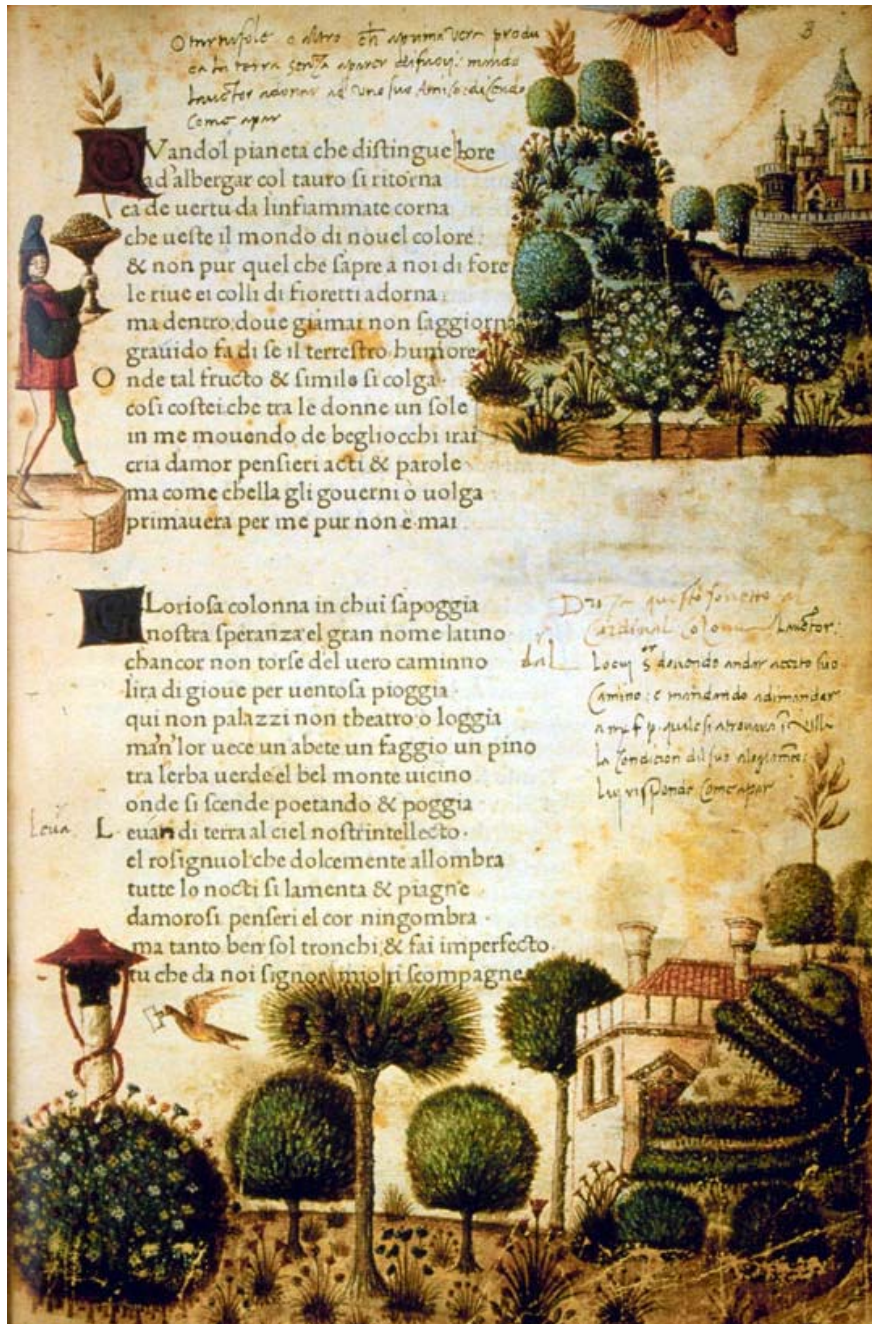 3
O turtufole o altro ch aprima vera produ
ca la terra senza aparer de fuori: mando
Lauctor adonar ad uno suo Amico: dicendo
Como apar
QVandol pianeta che distingue lore
ad'albergar col tauro si ritorna
ca de uertu da linfiammate corna
che ueste il mondo di nouel colore
& non pur quel che sapre a noi di fore
le riue ei colli di fioretti adorna
ma dentro doue giamai non saggiorna
grauido fa di se il terrestro humore
Onde tal fructo & simile si colga
cosi costei che tra le donne un sole
in me mouendo de begliocchi irai
cria damor pensieri acti & parole
ma come chella gli gouerni o uolga
primauera per me pur non è mai
GLoriosa colonna in chui sapoggia
nostra speranza el gran nome latino
chancor non torse del uero caminno
lira di gioue per uentosa pioggia
qui non palazzi non theatro o loggia
ma'n'lor uece un abete un faggio un pino
tra lerba uerde el bel monte uicino
onde si scende poetando & poggia
Leuan di terra al ciel nostrintellecto
el rosignuol che dolcemente allombra
tutte lo nocti si lamenta & piagne
damorosi penseri el cor ningombra
ma tanto ben sol tronchi & fai imperfecto
tu che da noi signor mio ti scompagne
questo sonetto al
Cardinal Lauctor:
douendo andar suo
Camino: e mandando adimandar
a m f p. quale si atrouaua
la condicion dil suo
Lui risponde Come apar
Leua